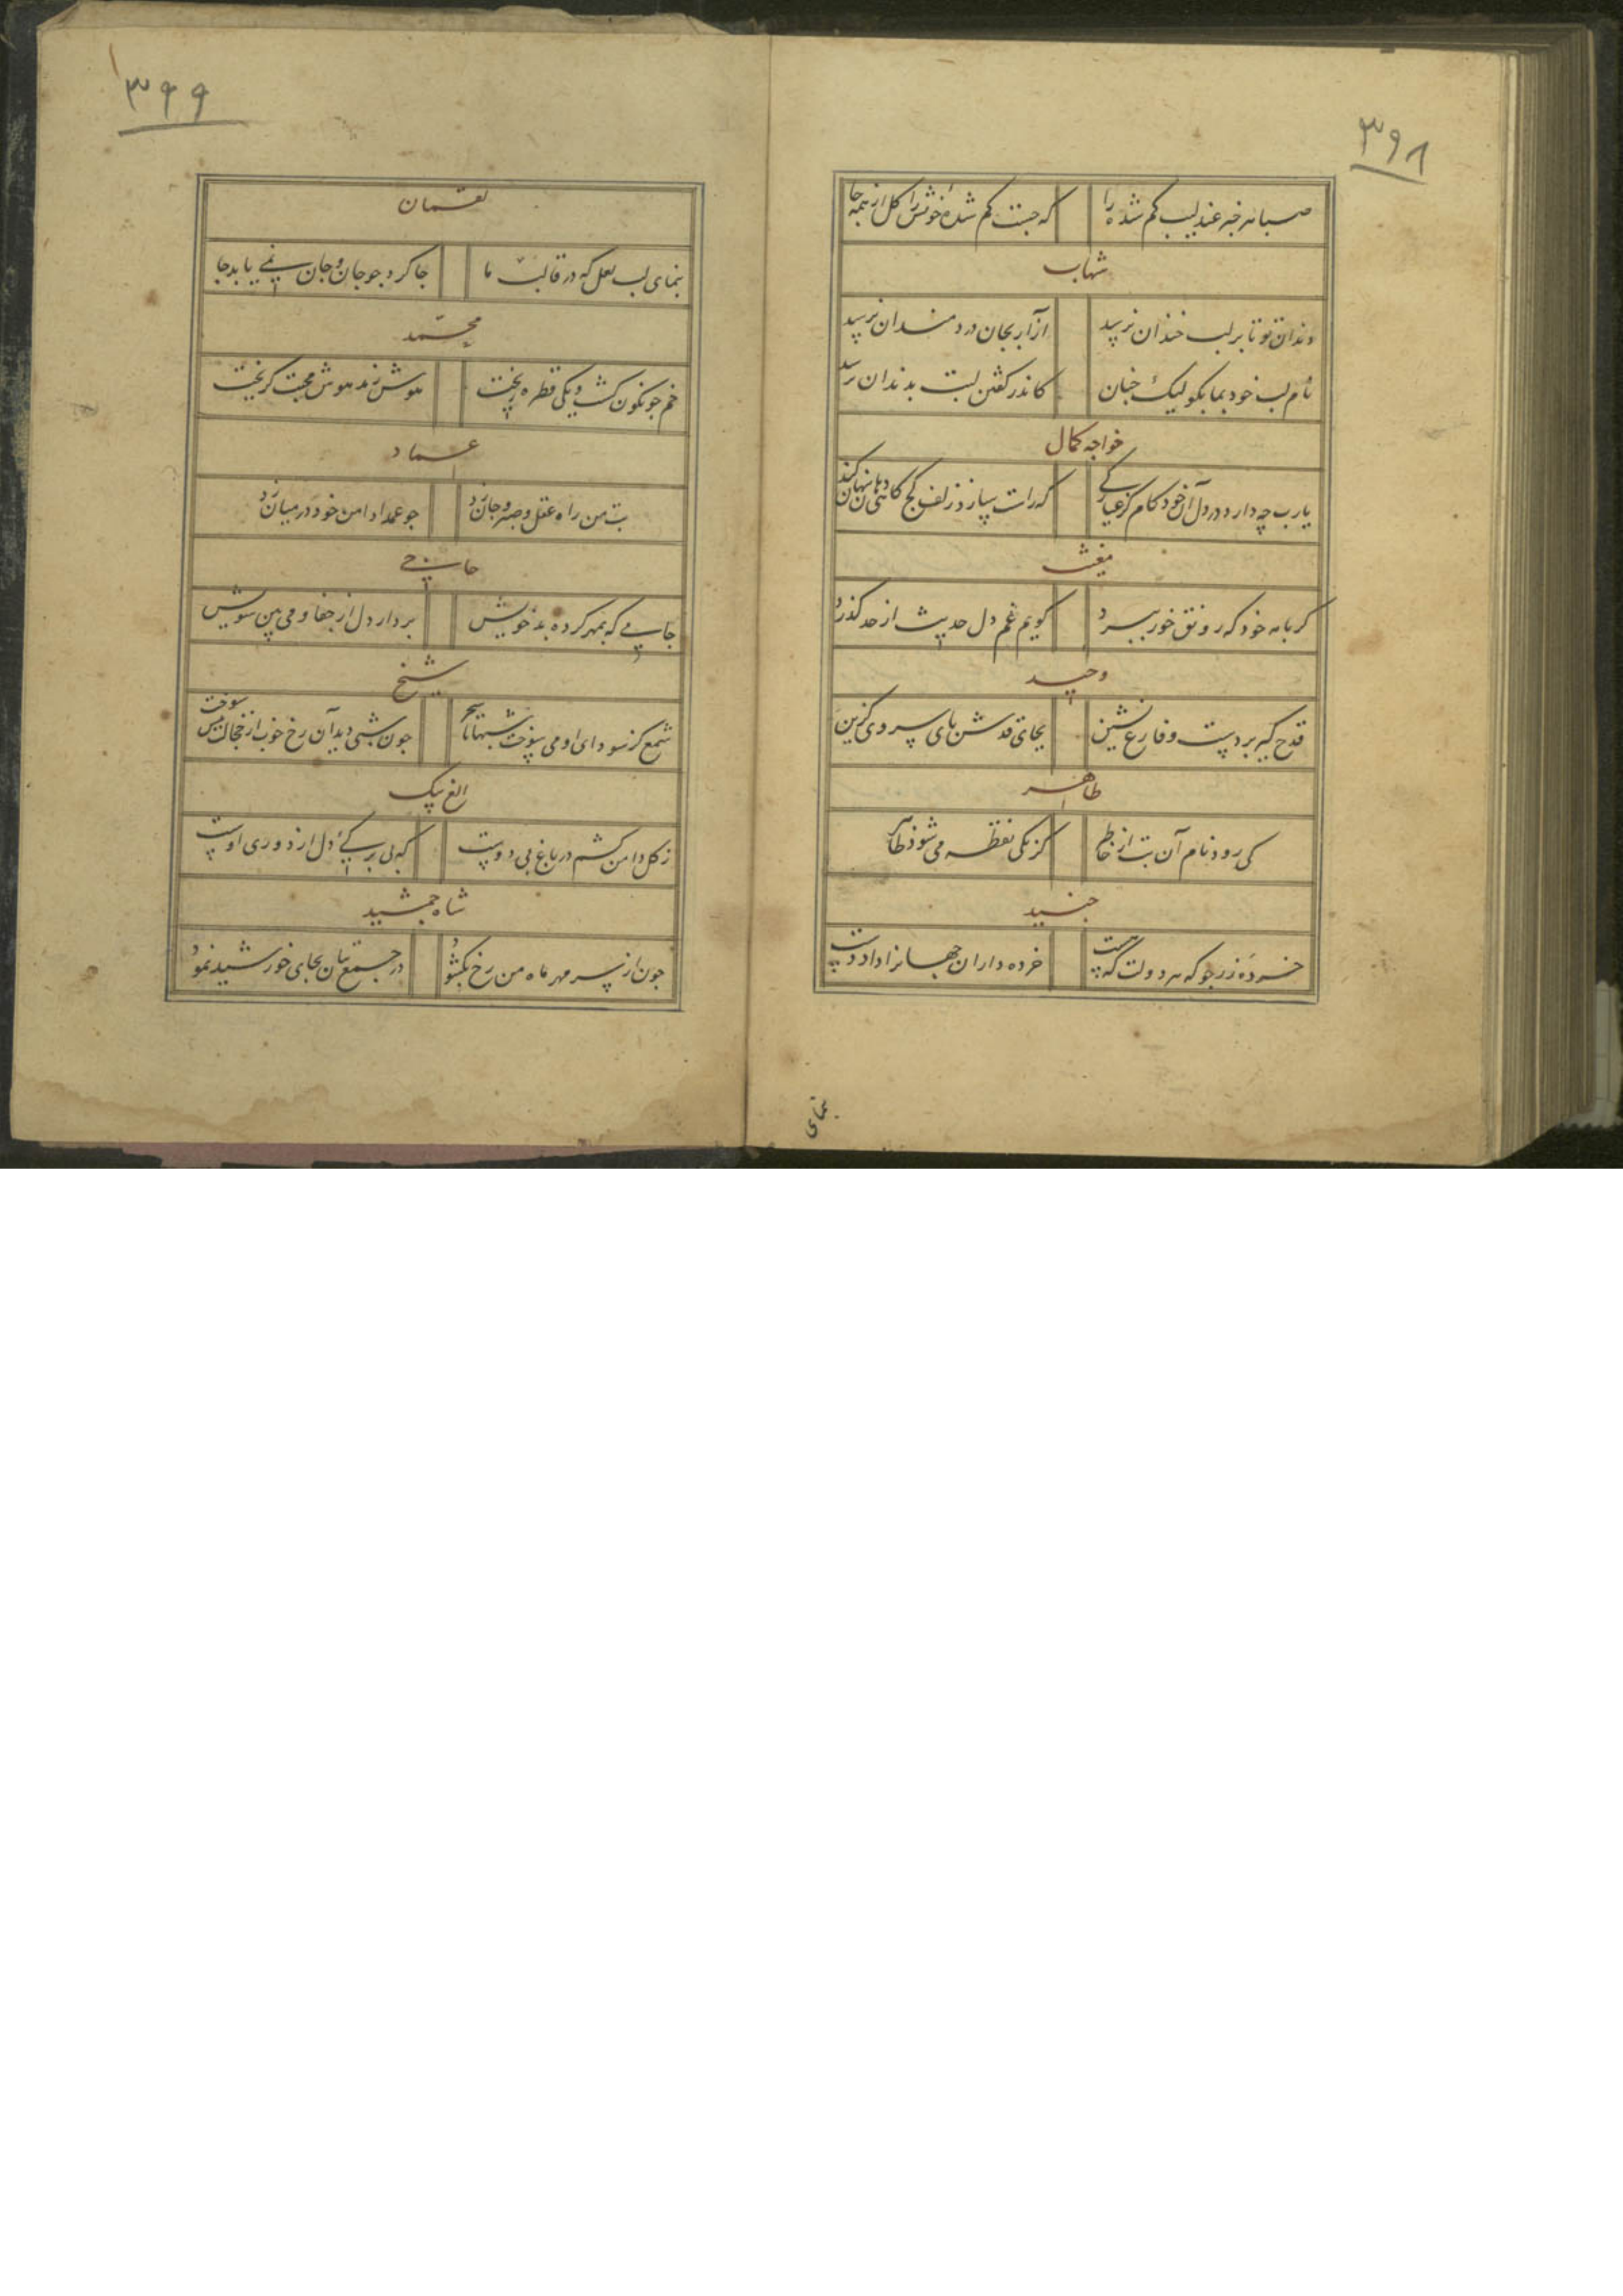 ۳۹۸
صبا مر خبر عندلیب کم شده را
که جست کم شده خویش را کل از همه جا
شهاب
دندان تو تا بر لب خندان نرسید
آزار بجان دردمندان نرسید
نام لب خود بما بکو لیک چنان
کاندر کفتن لبت بدندان نرسد
خواجه کمال
یارب چه دارد در دل آن خود کام کز
که راست سازد زلف کج کاهی
مغیث
کر با مه خود که رونق خور ببرد
کویم غم دل حدیث از حد کذرد
وحید
قدح کیر بر دست و فارغ نشین
بجای قدش پای سروی کزین
طاهر
کی رود نام آن بت از خاطر
کز یکی نقطه می شود ظاهر
جنید
خرده زر جو که سر دولت که هست
خرده داران جهانرا داد دست
بنمای
۳۹۹
لقمان
بنمای لب لعل که در قالب ما
جا کرد جو جان و جان نمی یابد جا
محمد
خم جو نکون کشت و یکی قطره ریخت
هوش ز مدهوش محبت کریخت
عماد
بت من راه عقل و صبر و جان زد
جو عمدا دامن خود در میان زد
حاجی
جامی که بمهر کرده بد خویش
بردار دل از جفا و می بین سویش
شیخ
شمع کز سودای او می سوخت شبها تا سحر
جون شبی دید آن رخ خوب از خجالت سوخت
الغ بیک
ز کل دامن کشم در باغ بی دوست
که بی برکی دل از دوری اوست
شاه جمشید
جون از سر مهر ماه من رخ بکشود
در جمع بتان بجای خورشید نمود